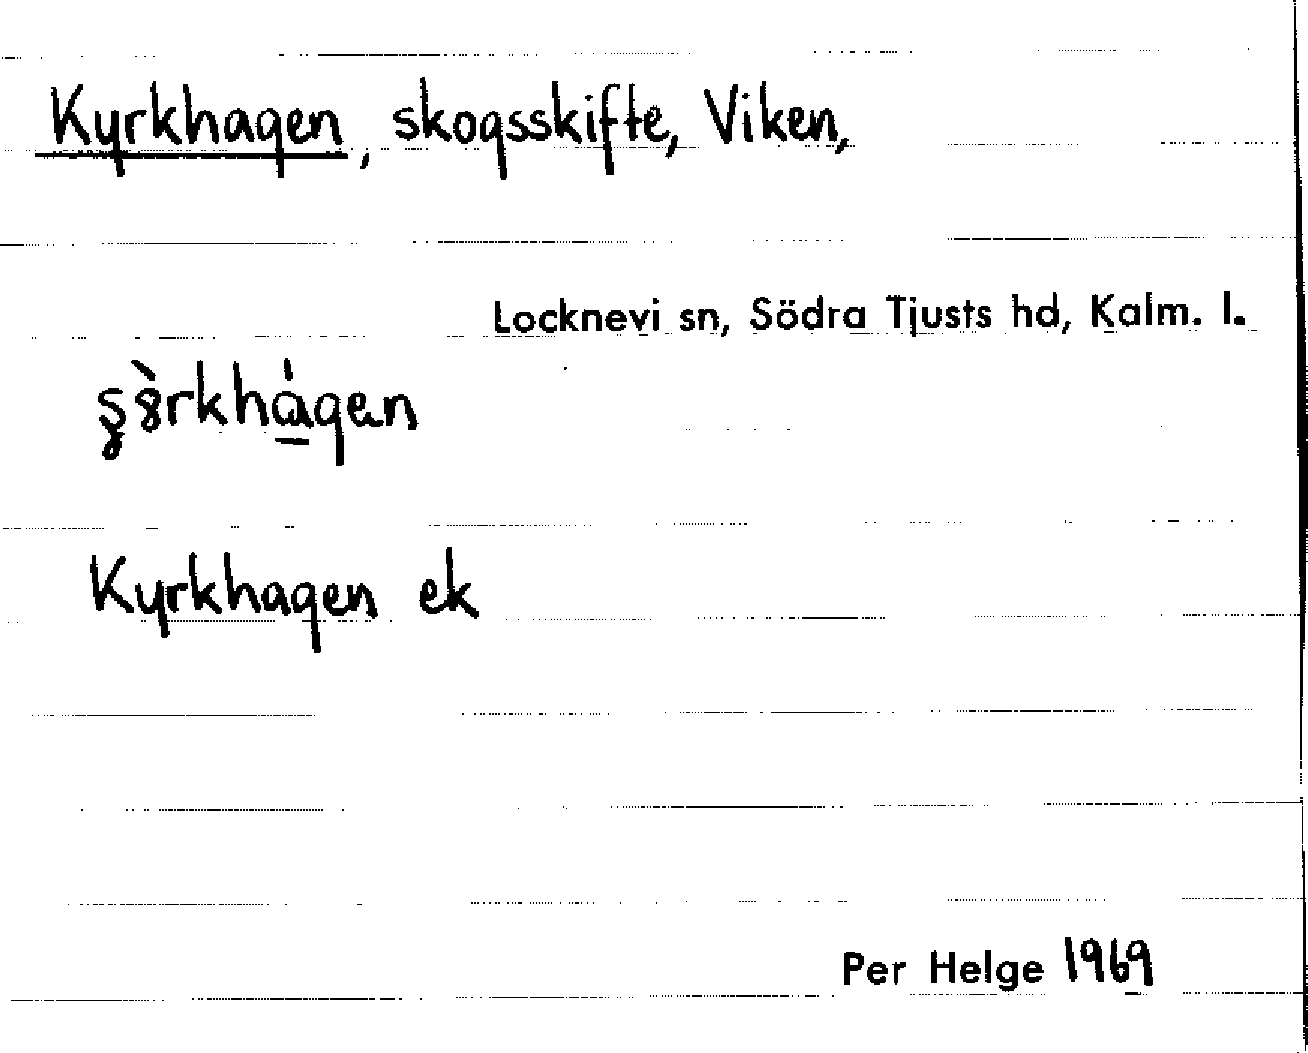 Kyrkhagen, skogsskifte, Viken,
Locknevi sn, Södra Tjusts hd, Kalm. l.
Kyrkhagen ek
Per Helge 1969